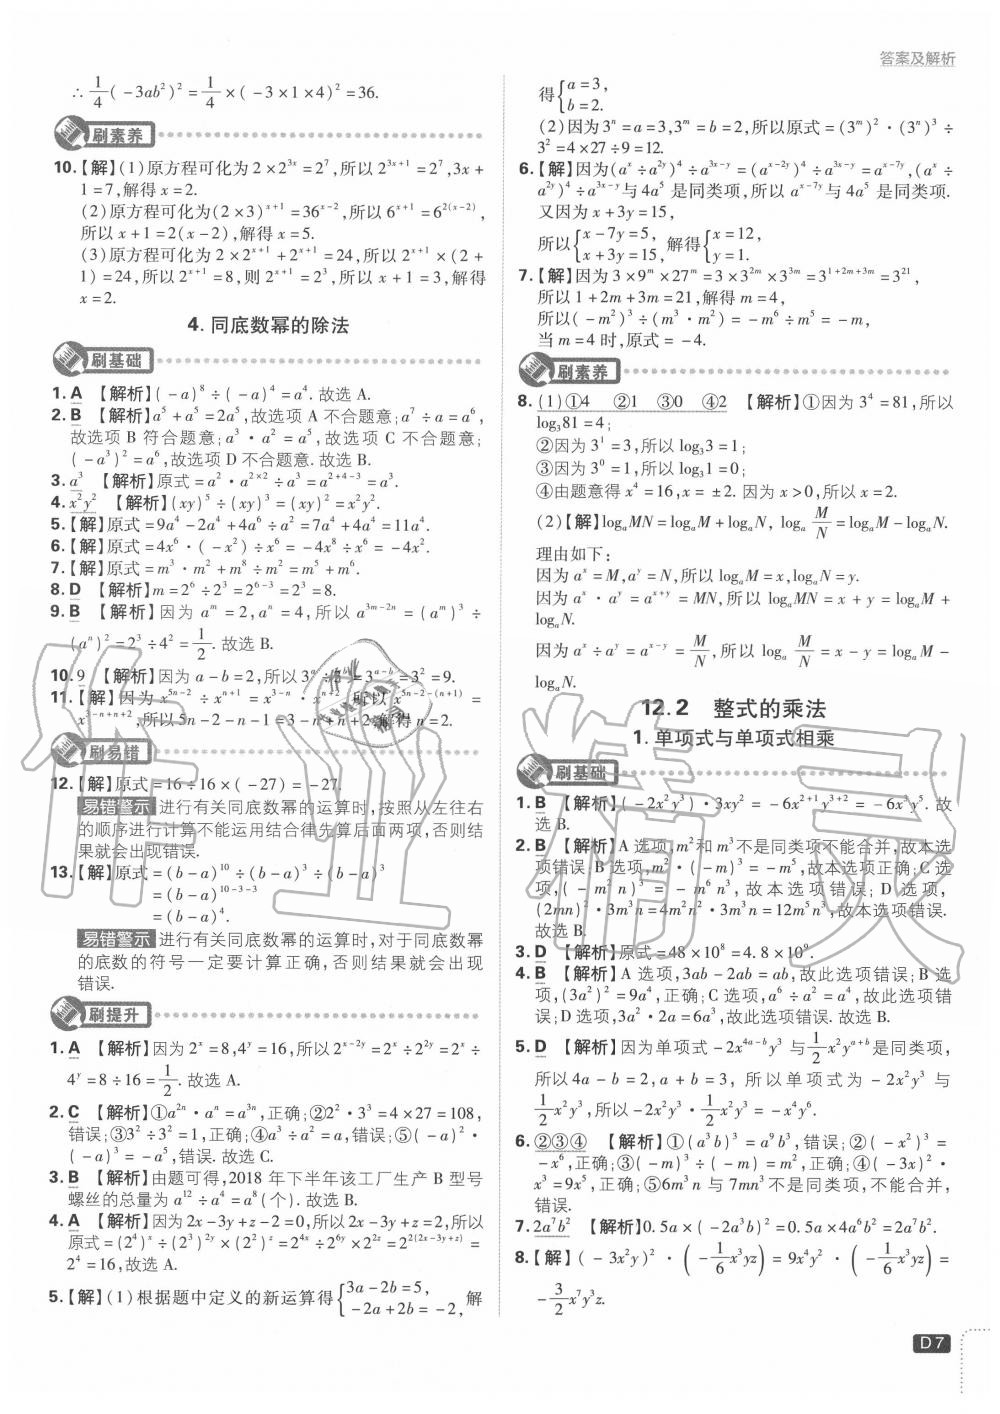 答案及解析
∴ 1/4(-3ab²)²=1/4×(-3×1×4)²=36.
刷素养
10.【解】(1)原方程可化为 2×2^{3x}=2^7,所以 2^{3x+1}=2^7,3x+
1=7,解得 x=2.
(2)原方程可化为(2×3)^{x+1}=36^{x-2},所以 6^{x+1}=6^{2(x-2)},
所以 x+1=2(x-2),解得 x=5.
(3)原方程可化为 2×2^{x+1}+2^{x+1}=24,所以 2^{x+1}×(2+
1)=24,所以 2^{x+1}=8,则 2^{x+1}=2³,所以 x+1=3,解得
x=2.
4.同底数幂的除法
刷基础
1. A 【解析】(-a)^8÷(-a)^4=a^4.故选 A.
2. B 【解析】a^5+a^5=2a^5,故选项 A 不合题意;a^7÷a=a^6,
故选项 B 符合题意;a³·a²=a^5,故选项 C 不合题意;
(-a³)²=a^6,故选项 D 不合题意.故选 B.
3. a³ 【解析】原式=a²·a^{2×2}÷a³=a^{2+4-3}=a³.
4. x²y² 【解析】(xy)^5÷(xy)³=(xy)²=x²y².
5.【解】原式=9a^4-2a^4+4a^6÷a²=7a^4+4a^4=11a^4.
6.【解】原式=4x^6·(-x²)÷x^6=-4x^8÷x^6=-4x².
7.【解】原式=m³·m²+m^8÷m²=m^5+m^6.
8. D 【解析】m=2^6÷2³=2^{6-3}=2³=8.
9. B 【解析】因为 a^m=2,a^n=4,所以 a^{3m-2n}=(a^m)³÷
(a^n)²=2³÷4²=1/2.故选 B.
10. 9 【解析】因为 a-b=2,所以 3^a÷3^b=3^{a-b}=3²=9.
11.【解】因为 x^{5n-2}÷x^{n+1}=x^{3-n}·x^{n+2},所以 x^{5n-2-(n+1)}=
x^{3-n+n+2},所以 5n-2-n-1=3-n+n+2,解得 n=2.
刷易错
12.【解】原式=16÷16×(-27)=-27.
易错警示 进行有关同底数幂的运算时,按照从左往右
的顺序进行计算不能运用结合律先算后面两项,否则结
果就会出现错误.
13.【解】原式=(b-a)^{10}÷(b-a)³÷(b-a)³
=(b-a)^{10-3-3}
=(b-a)^4.
易错警示 进行有关同底数幂的运算时,对于同底数幂
的底数的符号一定要计算正确,否则结果就会出现
错误.
刷提升
1. A 【解析】因为 2^x=8,4^y=16,所以 2^{x-2y}=2^x÷2^{2y}=2^x÷
4^y=8÷16=1/2.故选 A.
2. C 【解析】①a^{2n}·a^n=a^{3n},正确;②2²·3³=4×27=108,
错误;③3²÷3²=1,正确;④a³÷a²=a,错误;⑤(-a)²·
(-a)³=-a^5,错误.故选 C.
3. B 【解析】由题可得,2018 年下半年该工厂生产 B 型号
螺丝的总量为 a^{12}÷a^4=a^8(个).故选 B.
4. A 【解析】因为 2x-3y+z-2=0,所以 2x-3y+z=2,所以
原式=(2^4)^x÷(2³)^{2y}×(2²)^z=2^{4x}÷2^{6y}×2^{2z}=2^{2(2x-3y+z)}=
2^4=16,故选 A.
5.【解】(1)根据题中定义的新运算得{3a-2b=5, -2a+2b=-2,解
得{a=3, b=2.
(2)因为 3^n=a=3,3^m=b=2,所以原式=(3^m)²·(3^n)³÷
3²=4×27÷9=12.
6.【解】因为(a^x÷a^{2y})^4÷a^{3x-y}=(a^{x-2y})^4÷a^{3x-y}=a^{x-7y},(a^x÷
a^{2y})^4÷a^{3x-y}与 4a^5 是同类项,所以 a^{x-7y}与 4a^5 是同类项.
又因为 x+3y=15,
所以{x-7y=5, x+3y=15,解得{x=12, y=1.
7.【解】因为 3×9^m×27^m=3×3^{2m}×3^{3m}=3^{1+2m+3m}=3^{21},
所以 1+2m+3m=21,解得 m=4,
所以(-m²)³÷(m³·m²)=-m^6÷m^5=-m,
当 m=4 时,原式=-4.
刷素养
8. (1)①4 ②1 ③0 ④2 【解析】①因为 3^4=81,所以
log₃81=4;
②因为 3^1=3,所以 log₃3=1;
③因为 3^0=1,所以 log₃1=0;
④由题意得 x^4=16,x=±2.因为 x>0,所以 x=2.
(2)【解】logₐMN=logₐM+logₐN, logₐ M/N=logₐM-logₐN.
理由如下:
因为 a^x=M,a^y=N,所以 logₐM=x,logₐN=y.
因为 a^x·a^y=a^{x+y}=MN,所以 logₐMN=x+y=logₐM+
logₐN.
因为 a^x÷a^y=a^{x-y}=M/N,所以 logₐ M/N=x-y=logₐM-
logₐN.
12.2 整式的乘法
1.单项式与单项式相乘
刷基础
1. B 【解析】(-2x²y³)·3xy²=-6x^{2+1}y^{3+2}=-6x³y^5.故
选 B.
2. B 【解析】A 选项,m²和 m³不是同类项不能合并,故本选
项错误;B 选项,m²·(-m)³=-m^5,故本选项正确;C 选
项,(-m²n)³=-m^6n³,故本选项错误;D 选项,
(2mn)²·3m³n=4m²n²·3m³n=12m^5n³,故本选项错误.
故选 B.
3. D 【解析】原式=48×10^8=4.8×10^9.
4. B 【解析】A 选项,3ab-2ab=ab,故此选项错误;B 选
项,(3a²)²=9a^4,正确;C 选项,a^6÷a²=a^4,故此选项错
误;D 选项,3a²·2a=6a³,故此选项错误.故选 B.
5. D 【解析】因为单项式-2x^{4a-b}y³ 与 1/2x²y^{a+b}是同类项,
所以 4a-b=2,a+b=3,所以单项式为-2x²y³ 与
1/2x²y³,所以-2x²y³·1/2x²y³=-x^4y^6.
6. ②③④ 【解析】①(a³b)³=a^9b³,错误;②(-x²)³=
-x^6,正确;③(-m)³÷(-m)=m²,正确;④(-3x)²·
x³=9x^5,正确;⑤6m³n 与 7mn³不是同类项,不能合并,
错误.
7. 2a^7b² 【解析】0.5a×(-2a³b)²=0.5a×4a^6b²=2a^7b².
8.【解】(-3x²y)²·(-1/6x³yz)=9x^4y²·(-1/6x³yz)=
-3/2x^7y³z.
D7
作业精灵